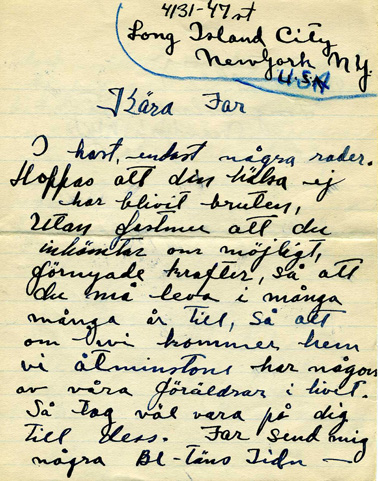 4131-47 st
Long Island City
New York N.Y.
U.S.A
Kära Far
I hast, endast några rader.
Hoppas att din hälsa ej
har blivit bruten,
Utan fastmer att du
inhämtar om möjligt,
förnyade krafter, så att
du må leva i många
många år till, så att
om vi kommer hem
vi åtminstone har någon
av våra föräldrar i livet.
Så tag väl vara på dig
till dess. Far send mig
några Bl-Läns Tidn —